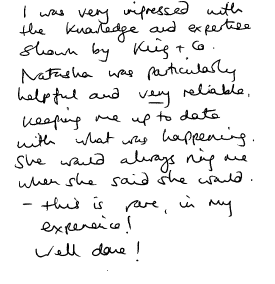 I was very impressed with
the knowledge and expertise
shown by King + Co.
Natasha was particularly
helpful and very reliable,
keeping me up to date
with what was happening.
She would always ring me
when she said she would.
- this is rare, in my
experience!
Well done!